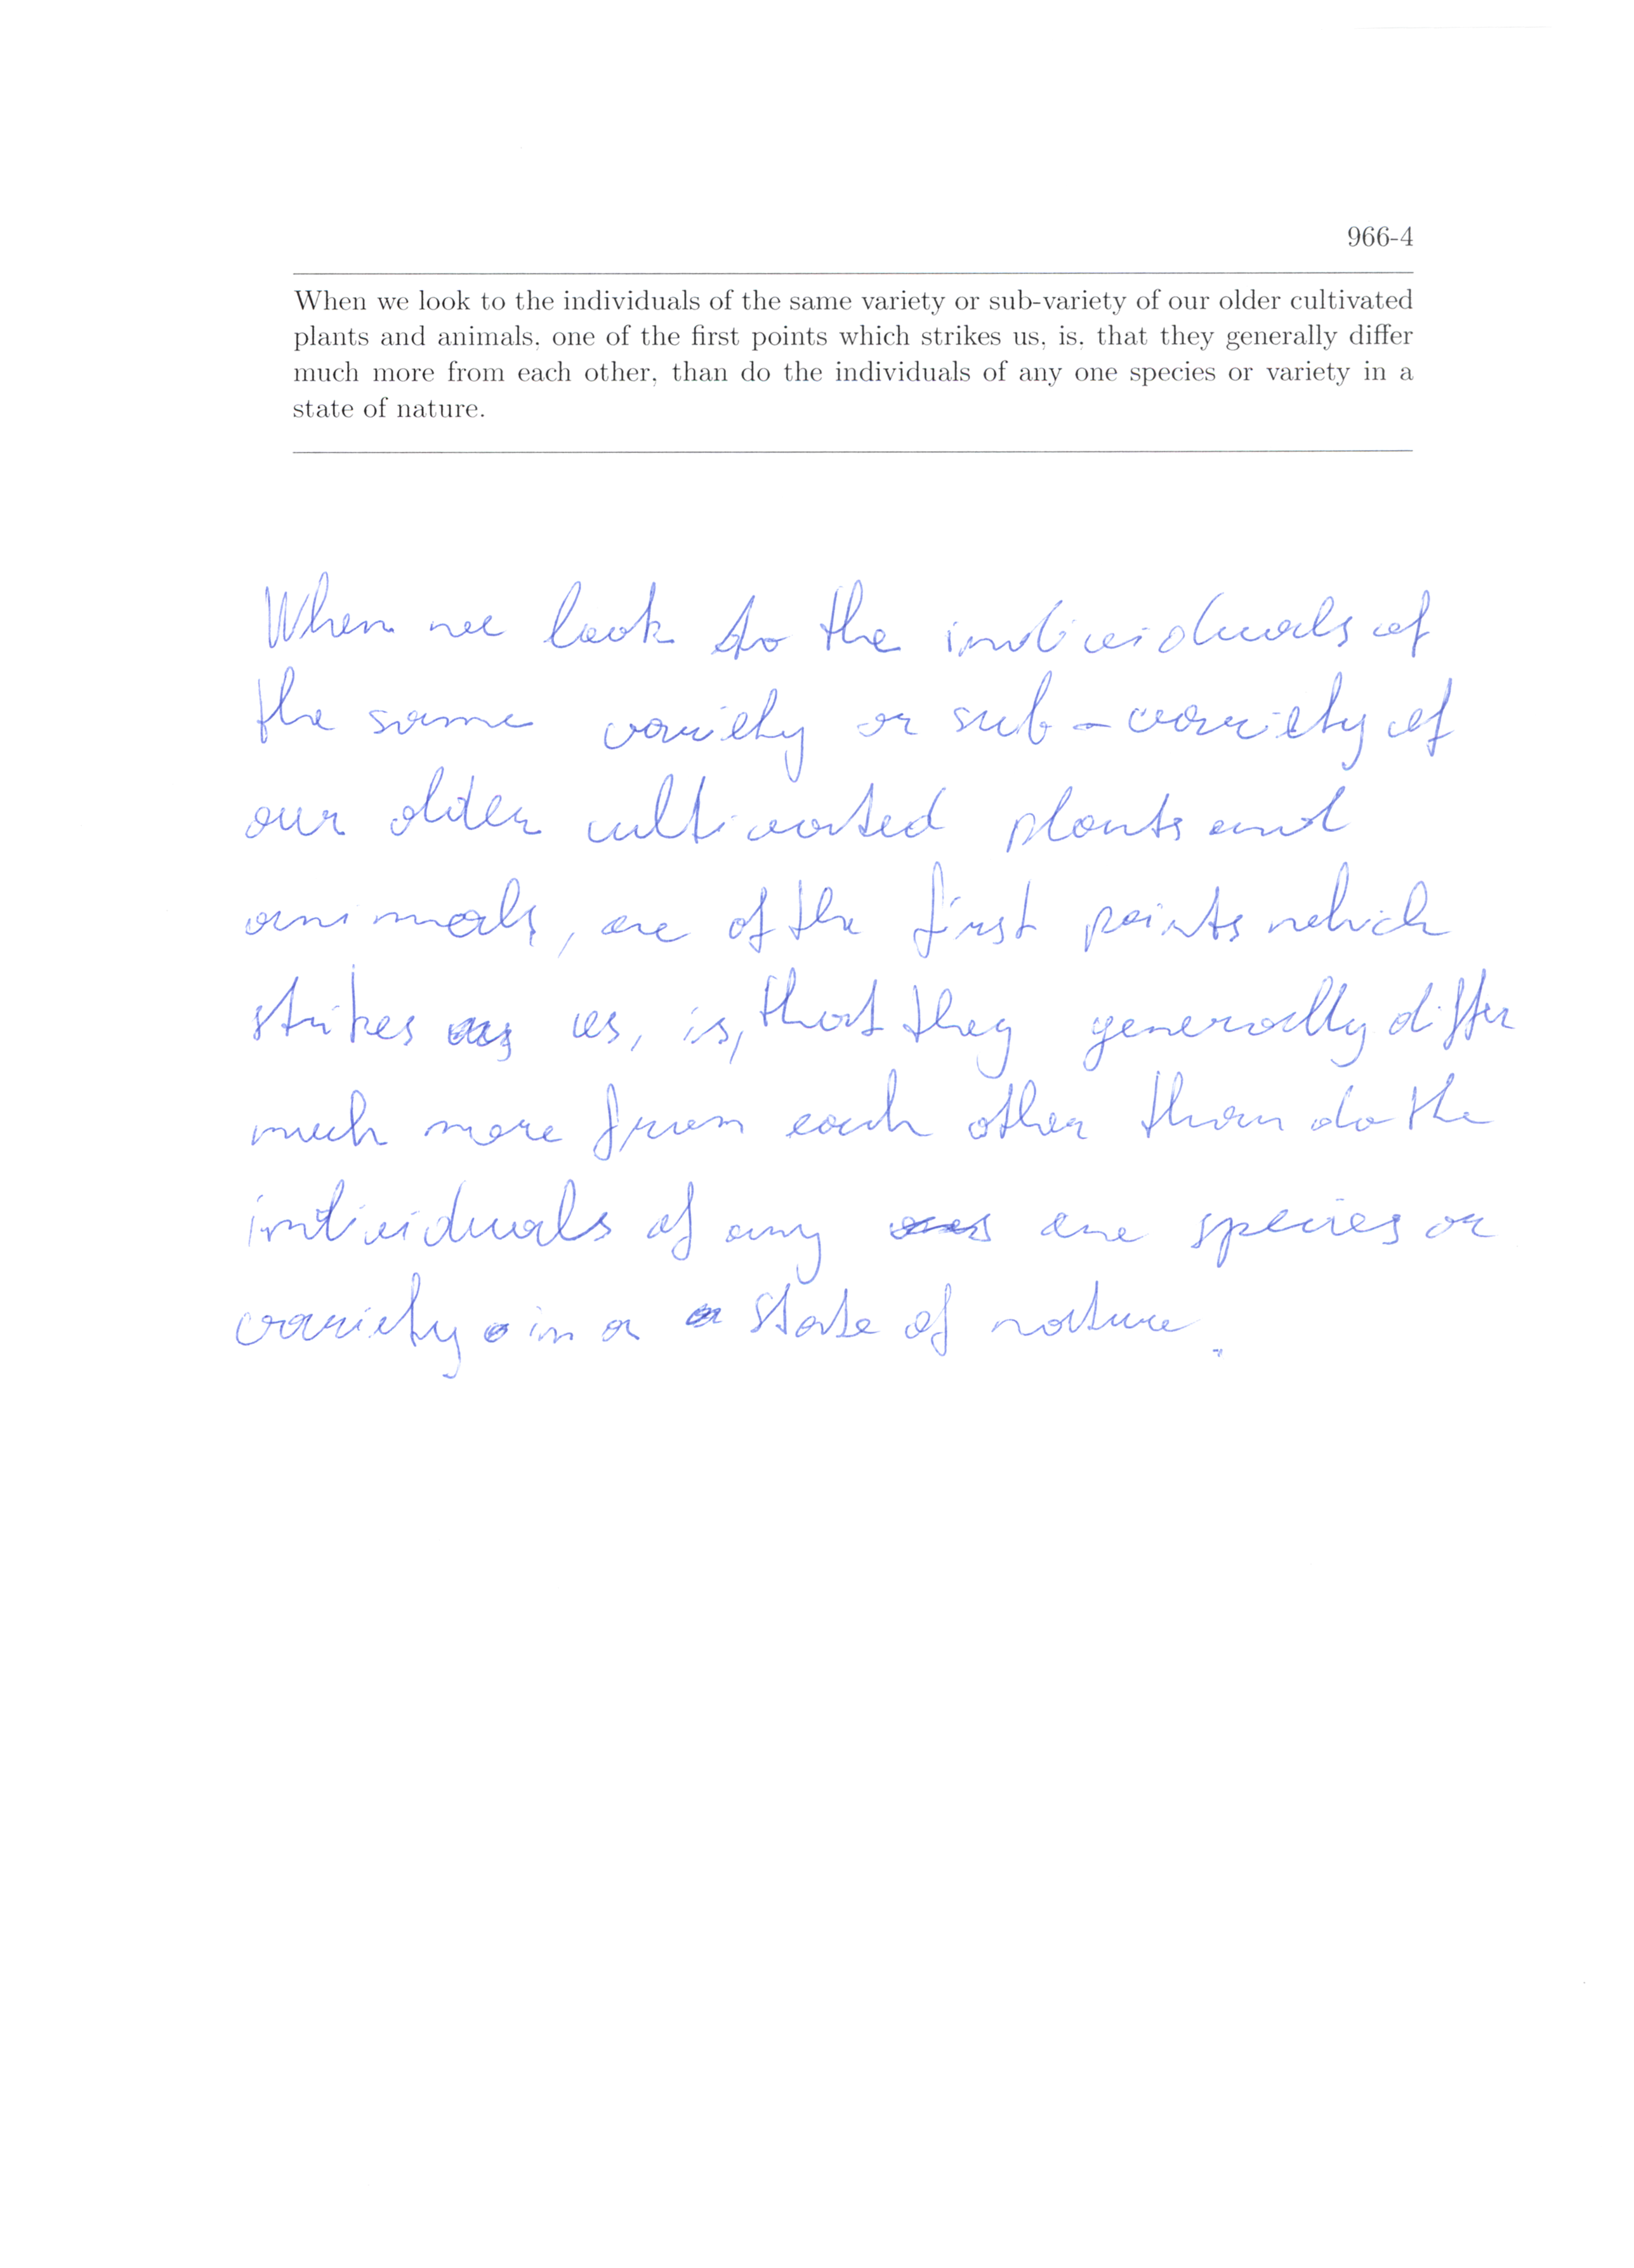 966-4
When we look to the individuals of the same variety or sub-variety of our older cultivated
plants and animals, one of the first points which strikes us, is, that they generally differ
much more from each other, than do the individuals of any one species or variety in a
state of nature.
When we look to the individuals of
the same variety or sub-variety of
our older cultivated plants and
animals, one of the first points which
strikes us, is, that they generally differ
much more from each other than do the
individuals of any one species or
variety in a state of nature.